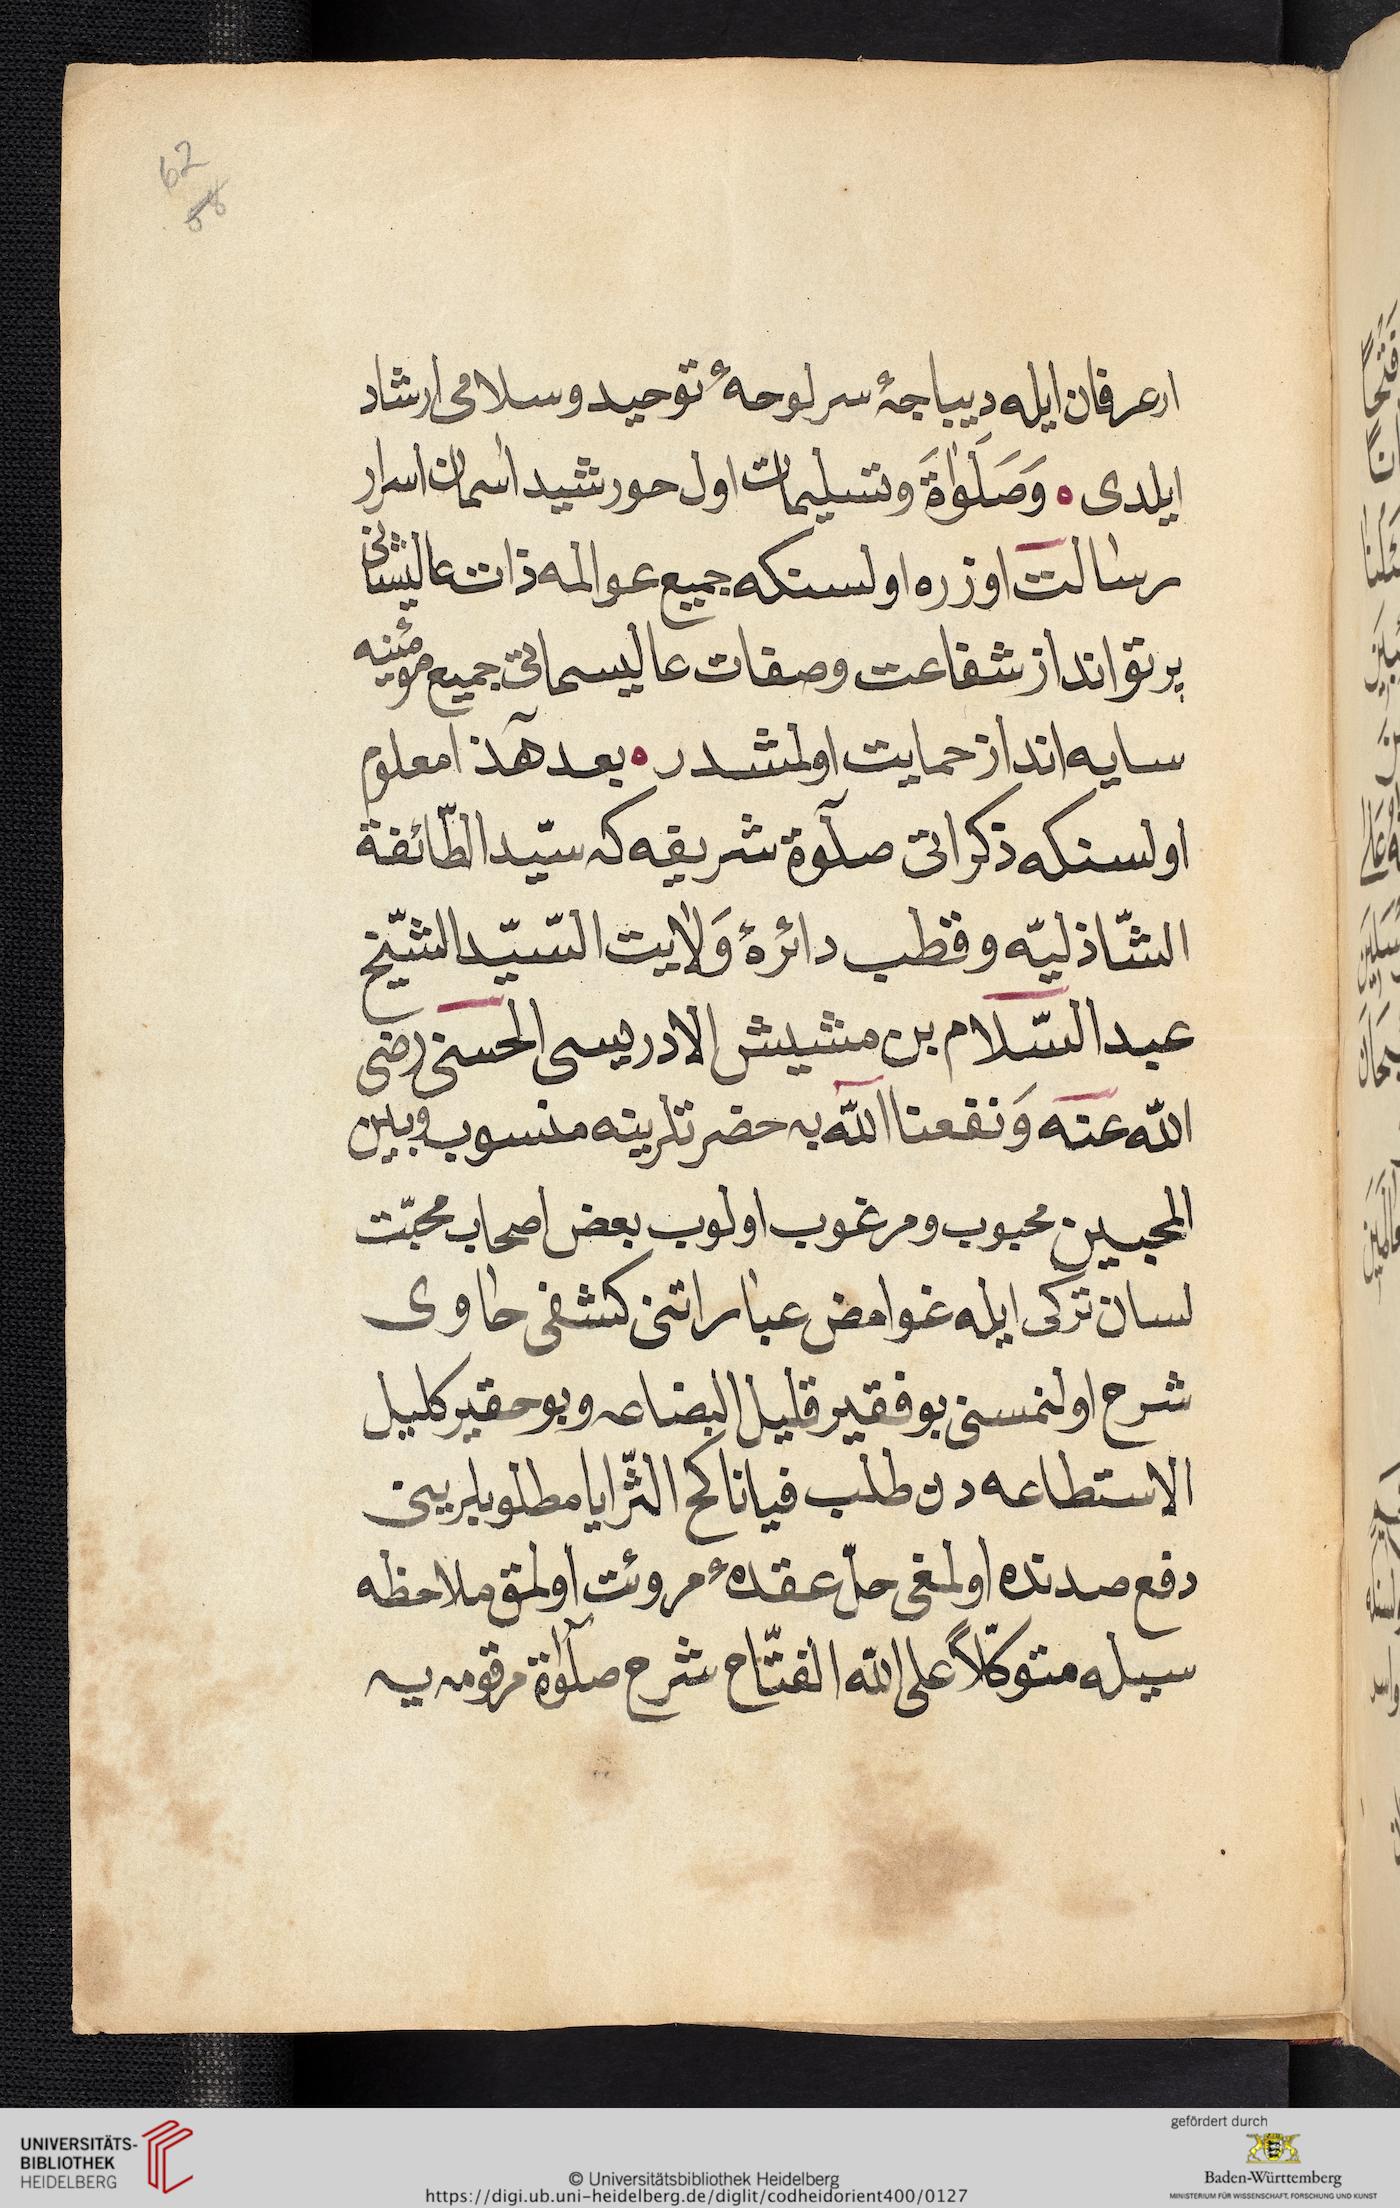 62
58
ار عرفان ايله ديباجهٔ سرلوحهٔ توحيد و سلامى ارشاد
ايلدى ه وَصَلَوٰاةَ وتسليمات اول حورشيد اسمان اسرار
رسالت اوزره اولسنكه جميع عوالمه ذات عاليشانى
پرتو انداز شفاعت وصفات عاليسماتى جميع مؤمنينه
سايه انداز حمايت اولمشدر ه بعد هٓذا معلوم
اولسنكه ذكر اتى صلٓوة شريفه كه سيّد الطّائفة
الشّاذليّه وقطب دائرهٔ وَلايت السّيّد الشّيخ
عبد السّلام بن مشيش الادريسى الحسنى رضى
الله عنه وَنفعنا اللّه به حضرتلرينه منسوب وبين
المحبين محبوب ومرغوب اولوب بعض اصحاب محبّت
لسان تركى ايله غوامض عباراتنى كشفى حاوى
شرح اولنمسنى بو فقير قليل البضاعه وبو حقير كليل
الاستطاعه دن طلب فيانا كح الثّرايا مطلوبلرينى
دفع صدنده اولمغى حلّ عقدهٔ مروئت اولمق ملاحظه
سيله متوكّلاً على اللّه الفتّاح شرح صلٓوٰة مرقومه يه
UNIVERSITÄTS-
BIBLIOTHEK
HEIDELBERG
© Universitätsbibliothek Heidelberg
https://digi.ub.uni-heidelberg.de/diglit/codheidorient400/0127
gefördert durch
Baden-Württemberg
MINISTERIUM FÜR WISSENSCHAFT, FORSCHUNG UND KUNST